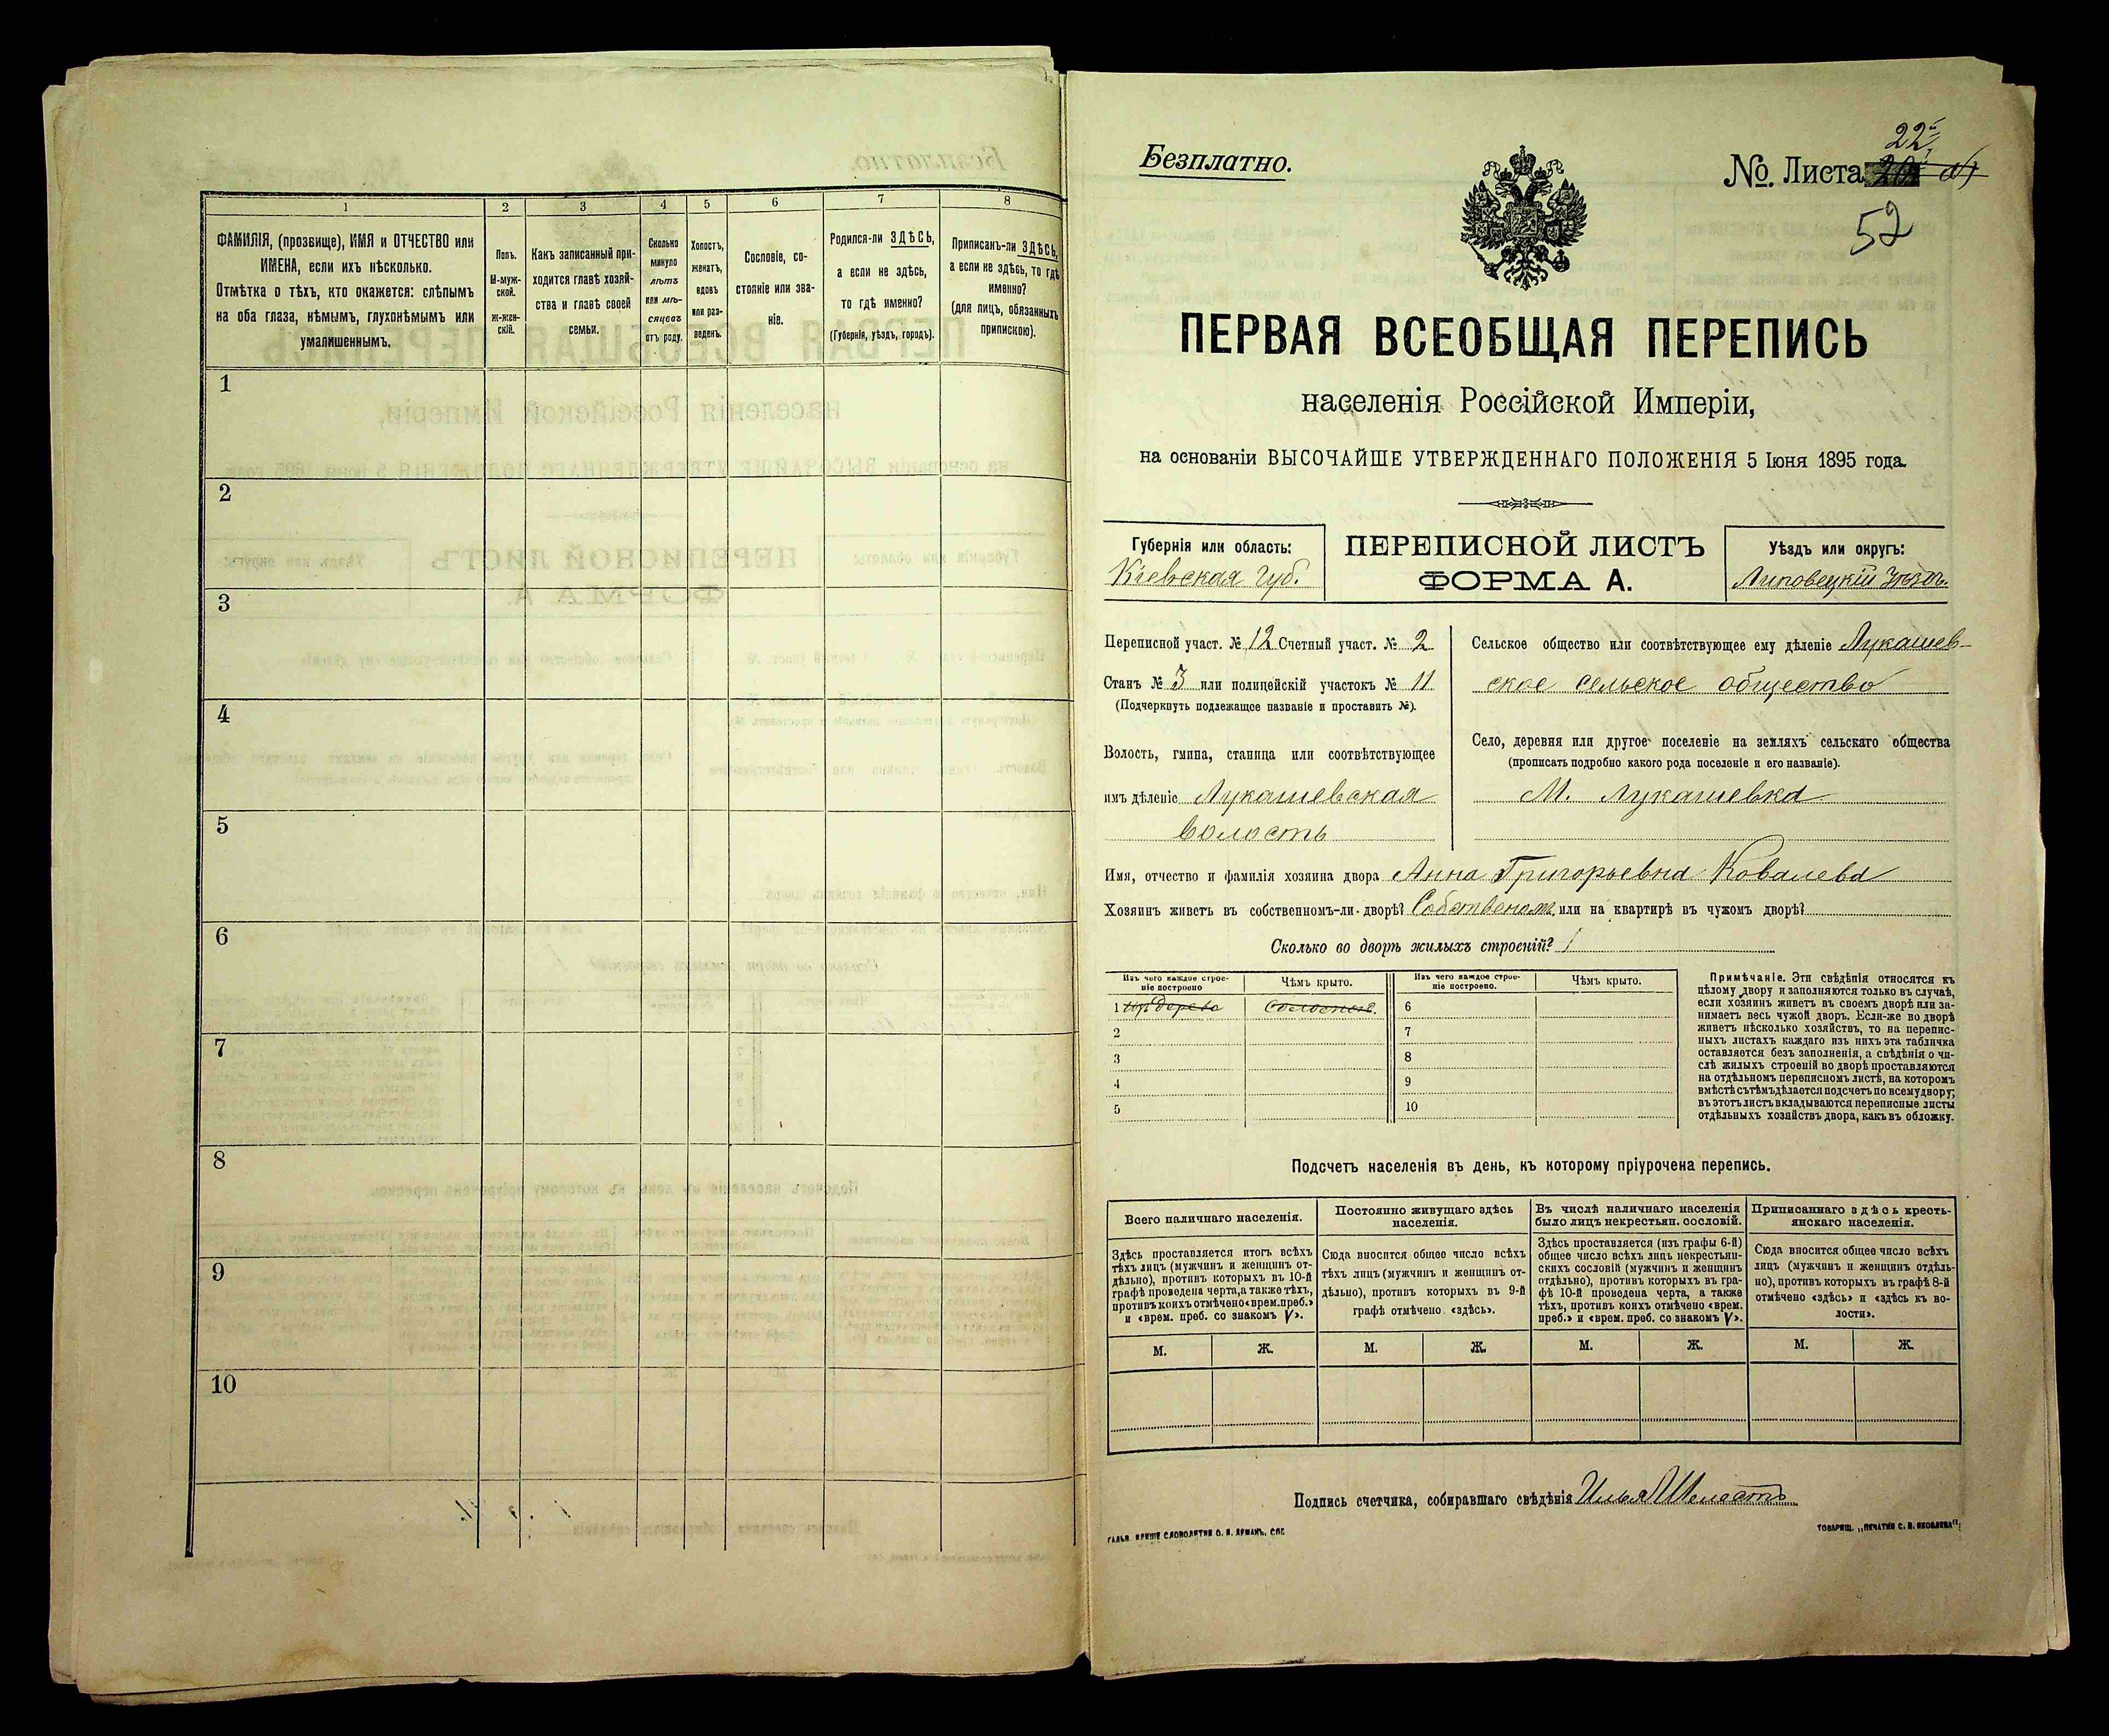 1
2
3
4
5
6
7
8
ФАМИЛІЯ, (прозвище), ИМЯ и ОТЧЕСТВО или
ИМЕНА, если ихъ нѣсколько.
Отмѣтка о тѣхъ, кто окажется: слѣпымъ
на оба глаза, нѣмымъ, глухонѣмымъ или
умалишеннымъ.
Полъ.
М-муж-
ской.
ж-жен-
скій.
Какъ записанный при-
ходится главѣ хозяй-
ства и главѣ своей
семьи.
Сколько
минуло
лѣтъ
или мѣ-
сяцевъ
отъ роду.
Холостъ,
женатъ,
вдовъ
или раз-
веденъ.
Сословіе, со-
стояніе или зва-
ніе.
Родился-ли ЗДѢСЬ,
а если не здѣсь,
то гдѣ именно?
(Губернія, уѣздъ, городъ).
Приписанъ-ли ЗДѢСЬ,
а если не здѣсь, то гдѣ
именно?
(для лицъ, обязанныхъ
припискою).
1
2
3
4
5
6
7
8
9
10
Безплатно.
22
№. Листа
52
ПЕРВАЯ ВСЕОБЩАЯ ПЕРЕПИСЬ
населенія Россійской Имперіи,
на основаніи ВЫСОЧАЙШЕ УТВЕРЖДЕННАГО ПОЛОЖЕНІЯ 5 Іюня 1895 года.
Губернія или область:
Кіевская Губ.
ПЕРЕПИСНОЙ ЛИСТЪ
ФОРМА А.
Уѣздъ или округъ:
Липовецкій Уѣздъ.
Переписной участ. № 12 Счетный участ. № 2
Станъ № 3 или полицейскій участокъ № 11
(Подчеркнуть подлежащее названіе и проставить №).
Волость, гмина, станица или соотвѣтствующее
имъ дѣленіе Лукашевская
волость
Сельское общество или соотвѣтствующее ему дѣленіе Лукашев-
ское сельское общество
Село, деревня или другое поселеніе на земляхъ сельскаго общества
(прописать подробно какого рода поселеніе и его названіе).
М. Лукашевка
Имя, отчество и фамилія хозяина двора Анна Григорьевна Ковалева
Хозяинъ живетъ въ собственномъ-ли дворѣ? Собственомъ или на квартирѣ въ чужомъ дворѣ?
Сколько во дворѣ жилыхъ строеній? 1
Изъ чего каждое строе-
ніе построено
Чѣмъ крыто.
Изъ чего каждое строе-
ніе построено.
Чѣмъ крыто.
1 изъ дерева
соломою.
6
2
7
3
8
4
9
5
10
Примѣчаніе. Эти свѣдѣнія относятся къ
цѣлому двору и заполняются только въ случаѣ,
если хозяинъ живетъ въ своемъ дворѣ или за-
нимаетъ весь чужой дворъ. Если-же во дворѣ
живетъ нѣсколько хозяйствъ, то на перепис-
ныхъ листахъ каждаго изъ нихъ эта табличка
оставляется безъ заполненія, а свѣдѣнія о чи-
слѣ жилыхъ строеній во дворѣ проставляются
на отдѣльномъ переписномъ листѣ, на которомъ
вмѣстѣ съ тѣмъ дѣлается подсчетъ по всему двору;
въ этотъ листъ вкладываются переписные листы
отдѣльныхъ хозяйствъ двора, какъ въ обложку.
Подсчетъ населенія въ день, къ которому пріурочена перепись.
Всего наличнаго населенія.
Постоянно живущаго здѣсь
населенія.
Въ числѣ наличнаго населенія
было лицъ некрестьян. сословій.
Приписаннаго здѣсь кресть-
янскаго населенія.
Здѣсь проставляется итогъ всѣхъ
тѣхъ лицъ (мужчинъ и женщинъ от-
дѣльно), противъ которыхъ въ 10-й
графѣ проведена черта, а также тѣхъ,
противъ коихъ отмѣчено «врем. преб.»
и «врем. преб. со знакомъ V».
Сюда вносится общее число всѣхъ
тѣхъ лицъ (мужчинъ и женщинъ от-
дѣльно), противъ которыхъ въ 9-й
графѣ отмѣчено «здѣсь».
Здѣсь проставляется (изъ графы 6-й)
общее число всѣхъ лицъ некрестьян-
скихъ сословій (мужчинъ и женщинъ
отдѣльно), противъ которыхъ въ гра-
фѣ 10-й проведена черта, а также
тѣхъ, противъ коихъ отмѣчено «врем.
преб.» и «врем. преб. со знакомъ V».
Сюда вносится общее число всѣхъ
лицъ (мужчинъ и женщинъ отдѣль-
но), противъ которыхъ въ графѣ 8-й
отмѣчено «здѣсь» и «здѣсь къ во-
лости».
М. Ж. М. Ж. М. Ж. М. Ж.
Подпись счетчика, собиравшаго свѣдѣнія Илья Шелестъ
ГАЛЬВ. КЛИШЕ СЛОВОЛИТНИ О. И. ЛЕМАНЪ, СПБ.
ТОВАРИЩ. „ПЕЧАТНЯ С. П. ЯКОВЛЕВА"